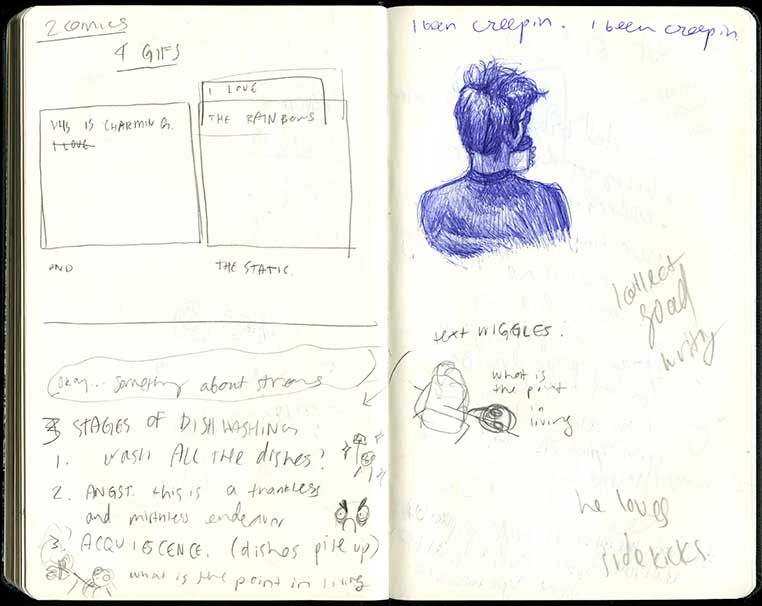 2 comics
4 GIFS
VHS IS CHARMING.
I LOVE
I LOVE
THE RAINBOWS
AND
THE STATIC.
okay... something about streams
STAGES OF DISHWASHING
1. WASH ALL THE dishes!
2. ANGST. this is a thankless
and mirthless endeavor
3. ACQUIESCENCE. (dishes pile up)
what is the point in living
I been creepin. I been creepin.
collect
good
writing
text WIGGLES.
what is
the point
in
living
he loves
sidekicks